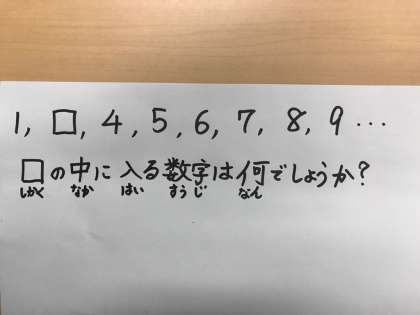 1, □, 4, 5, 6, 7, 8, 9 …
□の中に入る数字は何でしょうか?
しかく なか はい すう じ なん